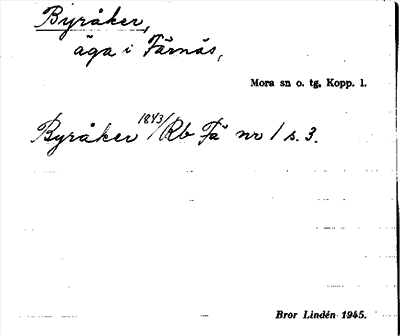 Byråker,
äga i Färnäs,
Mora sn o. tg, Kopp. l.
Byråker 1843/Rb Fä nr 1 s. 3.
Bror Lindén 1945.